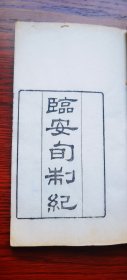 臨安旬制紀